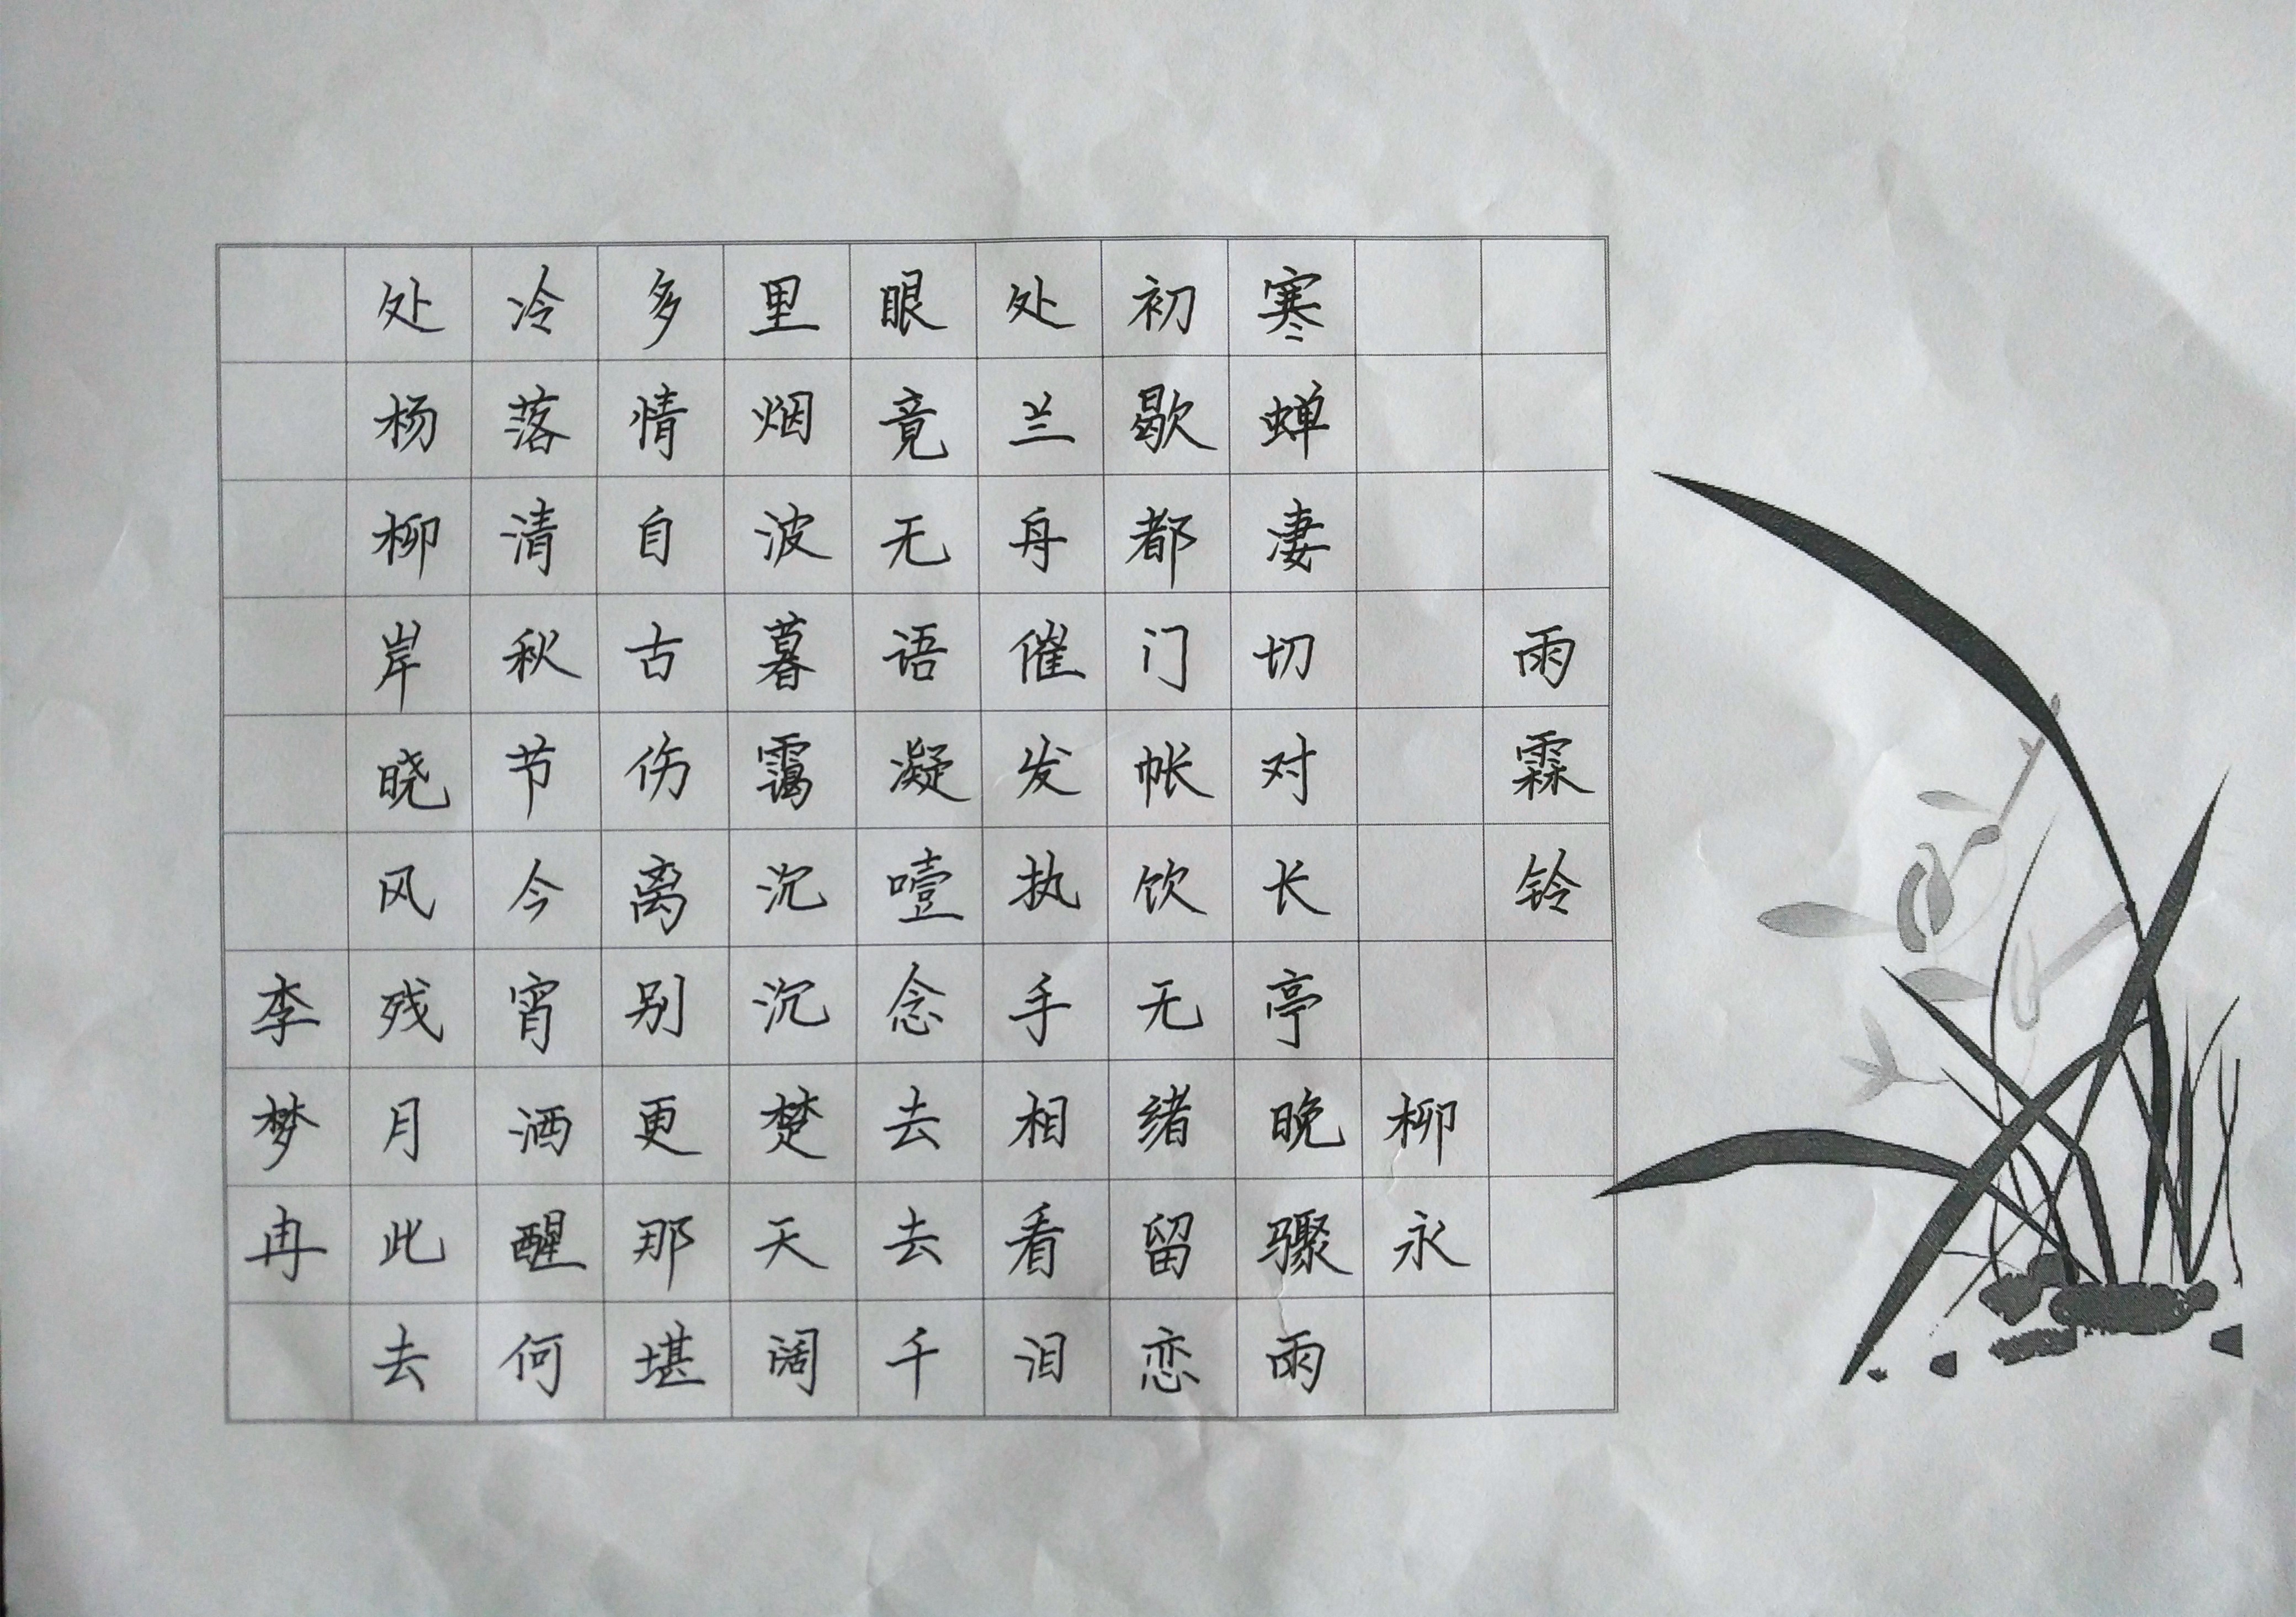 雨霖铃
柳永
寒蝉凄切对长亭晚骤雨
初歇都门帐饮无绪留恋
处兰舟催发执手相看泪
眼竟无语凝噎念去去千
里烟波暮霭沉沉楚天阔
多情自古伤离别更那堪
冷落清秋节今宵酒醒何
处杨柳岸晓风残月此去
李梦冉